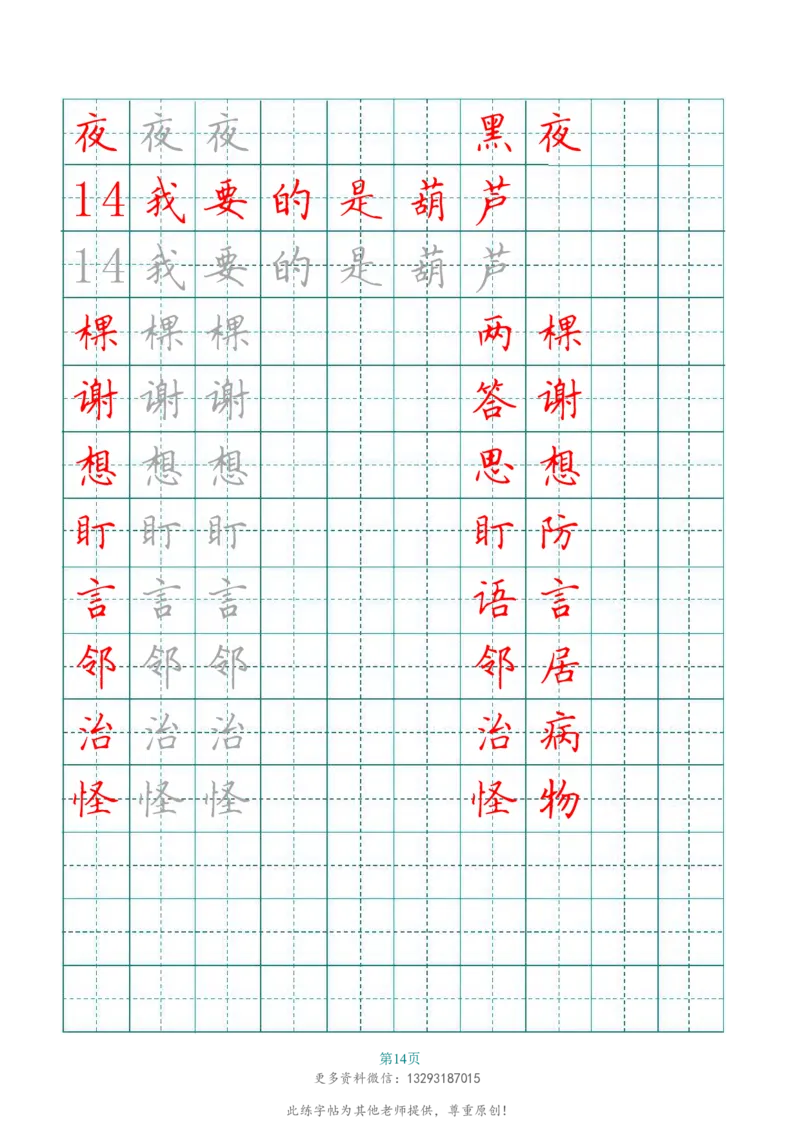 夜夜夜 黑夜
14我要的是葫芦
14我要的是葫芦
棵棵棵 两棵
谢谢谢 答谢
想想想 思想
盯盯盯 盯防
言言言 语言
邻邻邻 邻居
治治治 治病
怪怪怪 怪物
第14页
更多资料微信：13293187015
此练字帖为其他老师提供，尊重原创！